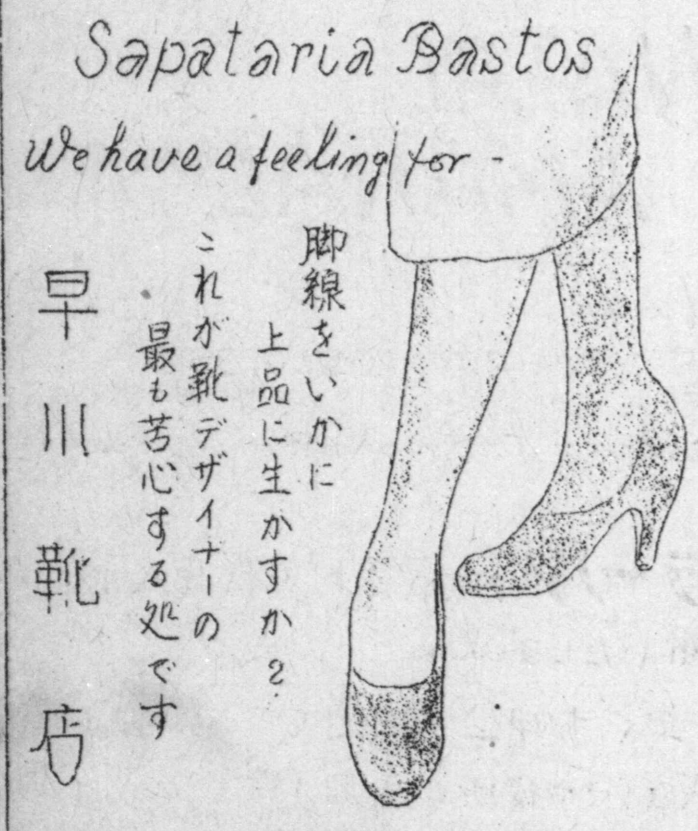 Sapataria Bastos
We have a feeling for -
脚線をいかに
上品に生かすか?
これが靴デザイナーの
最も苦心する処です
早川靴店